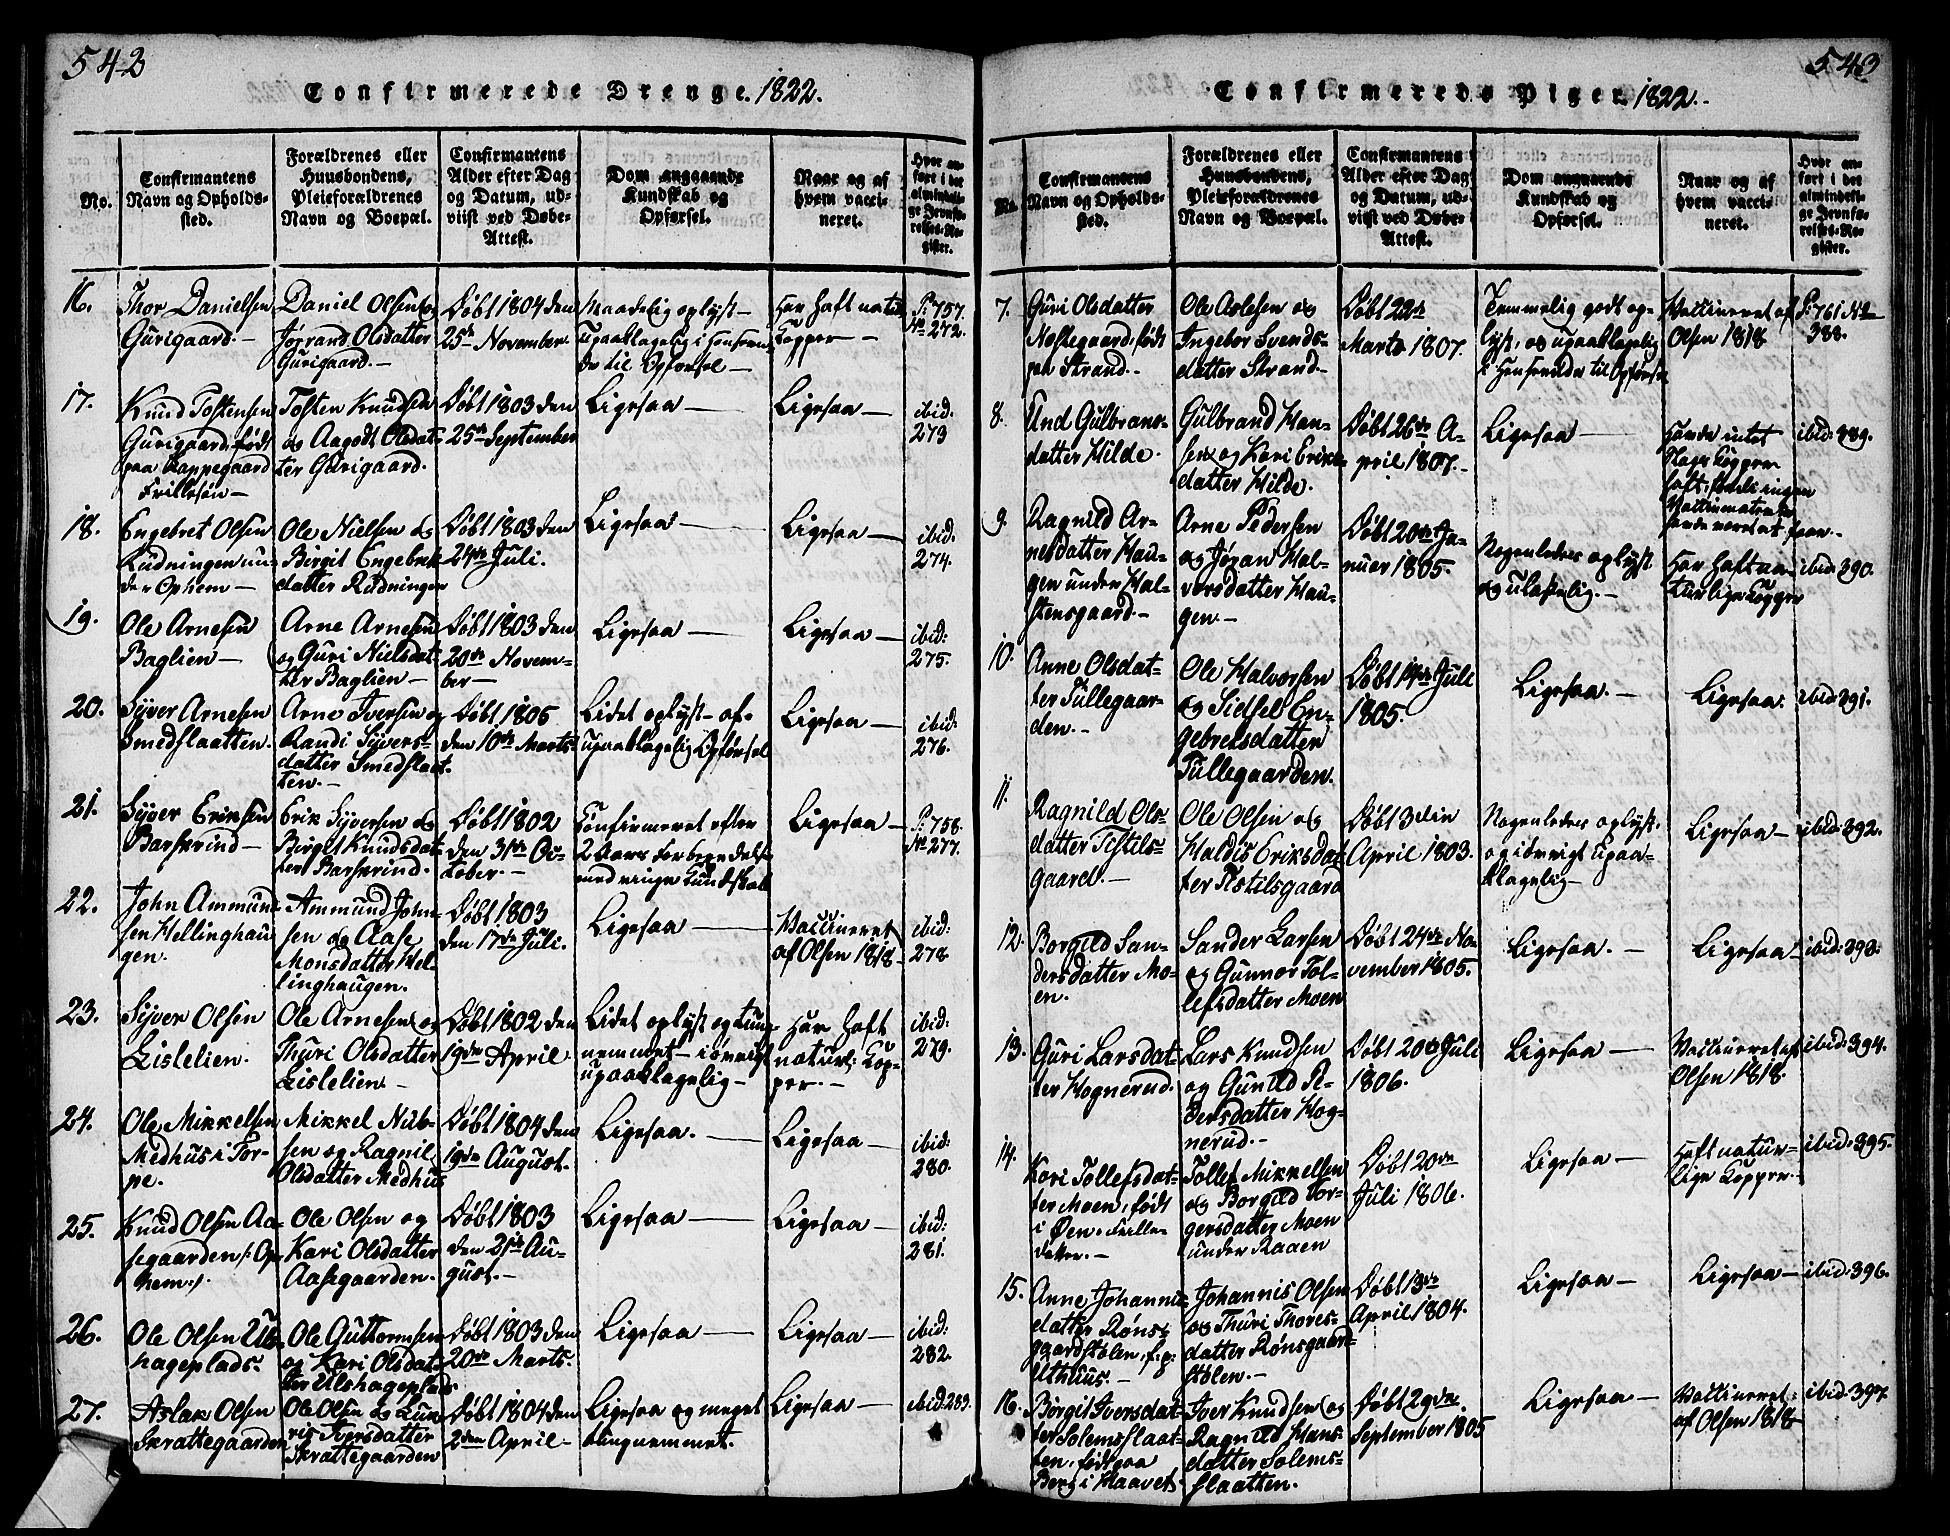 542
Confirmerede Drenge. 1822.
No.
Confirmantens Navn og Opholdssted.
Forældrenes eller Huusbondens, Pleieforældrenes Navn og Boepæl.
Confirmantens Alder efter Dag og Datum, udviist ved Døbe-Attest.
Dom angaaende Kundskab og Opførsel.
Naar og af hvem vaccineret.
Hvor anført i det almindelige Jevnførelses-Register.
16.
Thor Danielsen
Gurigaard.
Daniel Olsen og
Jørrand Olsdatter
Gurigaard.
Døbt 1804 den
25de November
Maadelig oplyst
upaaklagelig i Hensigende til Opførsel
Har haft naturl
Kopper
P: 757.
No 272.
17.
Knud Tostensen
Gurigaard, født
paa Kappegaard
Frillesøn
Tosten Knudsen
og Aagodt Olsdatter
Gurigaard.
Døbt 1803 den
25de September
Ligesaa
Ligesaa
ibid:
273
18.
Engebret Olsen
Rudningen under
Ophem
Ole Nielsen og
Birgit Engebretsdatter
Rudningen
Døbt 1803 den
24de Juli.
Ligesaa
Ligesaa
ibid:
274.
19.
Ole Arnesen
Baglien
Arne Arnesen
og Guri Nielsdatter
Baglien
Døbt 1803 den
20de November
Ligesaa
Ligesaa
ibid:
275.
20.
Syver Arnesen
Smedslaatten.
Arne Iversen og
Randi Syversdatter
Smedslaatten.
Døbt 1805
den 10de Marts
Lidet oplyst af
upaaklagelig Opførsel
Ligesaa
ibid:
276.
21.
Syver Eriksen
Barskrind
Erik Syversen og
Birgit Knudsdatter
Barskrind.
Døbt 1802
den 31te October.
Confirmeret efter
2 Aars Forberedelse
med ringe Kundskab
Ligesaa
P: 758.
No 277.
22.
John Ammundsen
Hellinghaugen.
Ammund Johnsen
og Aase
Monsdatter Hellinghaugen.
Døbt 1803
den 17de Juli.
Ligesaa
Vaccineret
af Olsen 1818
ibid:
278.
23.
Syver Olsen
Lislelien.
Ole Arnesen og
Thuri Olsdatter
Lislelien
Døbt 1802 den
19de April
Lidet oplyst og tungnemmet
iøvrigt
upaaklagelig
Har haft
naturl: Kopper.
ibid:
279.
24.
Ole Mikkelsen
Medhus i Torpe.
Mikkel Nubsen
og Ragnil
Olsdatter Medhus
Døbt 1804 den
19de August.
Ligesaa.
Ligesaa
ibid:
280.
25.
Knud Olsen Aasegaarden
/: Ophem :/
Ole Olsen og
Kari Olsdatter
Aasegaarden.
Døbt 1803
den 21de August.
Ligesaa
Ligesaa
ibid:
281.
26.
Ole Olsen Ulshageplads.
Ole Guttormsen
og Kari Olsdatter
Ulshageplads
Døbt 1803 den
20de Marts.
Ligesaa
Ligesaa
ibid:
282.
27.
Aslak Olsen
Skrattegaarden
Ole Olsen og Guri
Iversdatter
Skrattegaarden
Døbt 1804 den
2den April
Ligesaa og meget
tungnemmet.
Ligesaa
ibid: 283.
543
Confirmerede Piger 1822.
No.
Confirmantens Navn og Opholdssted.
Forældrenes eller Huusbondens, Pleieforældrenes Navn og Boepæl.
Confirmantens Alder efter Dag og Datum, udviist ved Døbe-Attest.
Dom angaaende Kundskab og Opførsel.
Naar og af hvem vaccineret.
Hvor anført i det almindelige Jevnførelses-Register.
7.
Guri Olsdatter
født
paa Strand.
Ole Aslesen og
Ingebor Svendsdatter
Strand
Døbt 22de
Marts 1807.
Temmelig godt oplyst,
og upaaklagelig
i Henseende til Opførsel
Vaccineret af
Olsen 1818
P: 761 No
388.
8.
Und Gulbransdatter
Hilde.
Gulbrand Hansen
og Kari Eriksdatter
Hilde.
Døbt 26de April
1807.
Ligesaa
Havde intet
Slags Kopper
haft, fordi ingen
Vaccinmaterie
havde været at faae.
ibid: 389.
9.
Ragnild Arnesdatter
Haugen
under Halstensgaard.
Arne Pedersen
og Jøran Halvorsdatter
Haugen
Døbt 20de Januar
1805.
Nogenledes oplyst
og ulastelig.
Har haft naturlige
Kopper
ibid: 390.
10.
Anne Olsdatter
Tullegaarden.
Ole Halvorsen
og Sidsel Engebretsdatter
Tullegaarden.
Døbt 14de Juli
1805.
Ligesaa.
Ligesaa.
ibid: 391.
11.
Ragnild Olsdatter
Tistilsgaard.
Ole Olsen og
Haldis Eriksdatter
Tistilsgaard
Døbt 3die
April 1803.
Nogenledes oplyst,
og iøvrigt upaaklagelig
Ligesaa
ibid: 392.
12.
Borgild Sandersdatter
Moen.
Sander Larsen
og Gunnor Tollefsdatter
Moen
Døbt 24de November
1805.
Ligesaa.
Ligesaa
ibid: 393.
13.
Guri Larsdatter
Hognerud.
Lars Knudsen
og Gunild Andersdatter
Hognerud.
Døbt 20de Juli
1806.
Ligesaa
Vaccineret af
Olsen 1818.
ibid: 394.
14.
Kari Tollefsdatter
Moen, født
i Øen. Frilledatter.
Tollef Mikkelsen
og Borgild Torgersdatter
Moen
under Raaen
Døbt 20de
Juli 1806.
Ligesaa
Haft naturlige
Kopper.
ibid: 395.
15.
Anne Johannisdatter
Rønsgaardstølen, f: p:
Uthuus.
Johannis Olsen
og Thuri Thoresdatter
Rønsgaardstølen.
Døbt 13de
April 1804.
Ligesaa
Ligesaa
ibid: 396.
16.
Børgit Iversdatter
Solemsslaatten,
født paa
Berg i Haavet
Iver Knudsen og
Ragnild Hansdatter
Solemsslaatten.
Døbt 29de
September 1805
Ligesaa
Vaccineret
af Olsen 1818
ibid: 397.